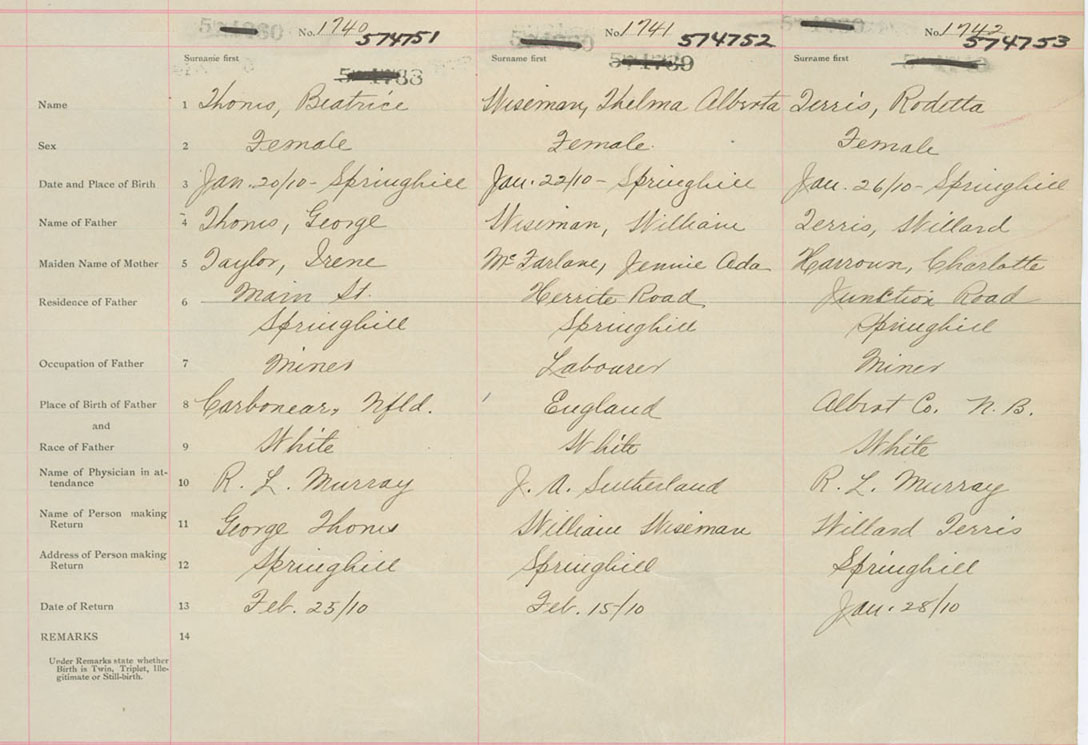 No. 1740 No. 1741 No. 1742
574751 574752 574753
Surname first Surname first Surname first
Name 1 Thoms, Beatrice Wiseman, Thelma Alberta Terris, Rodetta
Sex 2 Female Female Female
Date and Place of Birth 3 Jan. 20/10 - Springhill Jan. 22/10 - Springhill Jan. 26/10 - Springhill
Name of Father 4 Thoms, George Wiseman, William Terris, Willard
Maiden Name of Mother 5 Taylor, Irene McFarlane, Jennie Ada Harroun, Charlotte
Residence of Father 6 Main St. Herrite Road Junction Road
Springhill Springhill Springhill
Occupation of Father 7 Miner Labourer Miner
Place of Birth of Father 8 Carbonear, Nfld. England Albert Co. N. B.
and
Race of Father 9 White White White
Name of Physician in at-
tendance 10 R. L. Murray J. A. Sutherland R. L. Murray
Name of Person making
Return 11 George Thoms William Wiseman Willard Terris
Address of Person making
Return 12 Springhill Springhill Springhill
Date of Return 13 Feb. 25/10 Feb. 15/10 Jan. 28/10
REMARKS 14
Under Remarks state whether
Birth is Twin, Triplet, Ille-
gitimate or Still-birth.